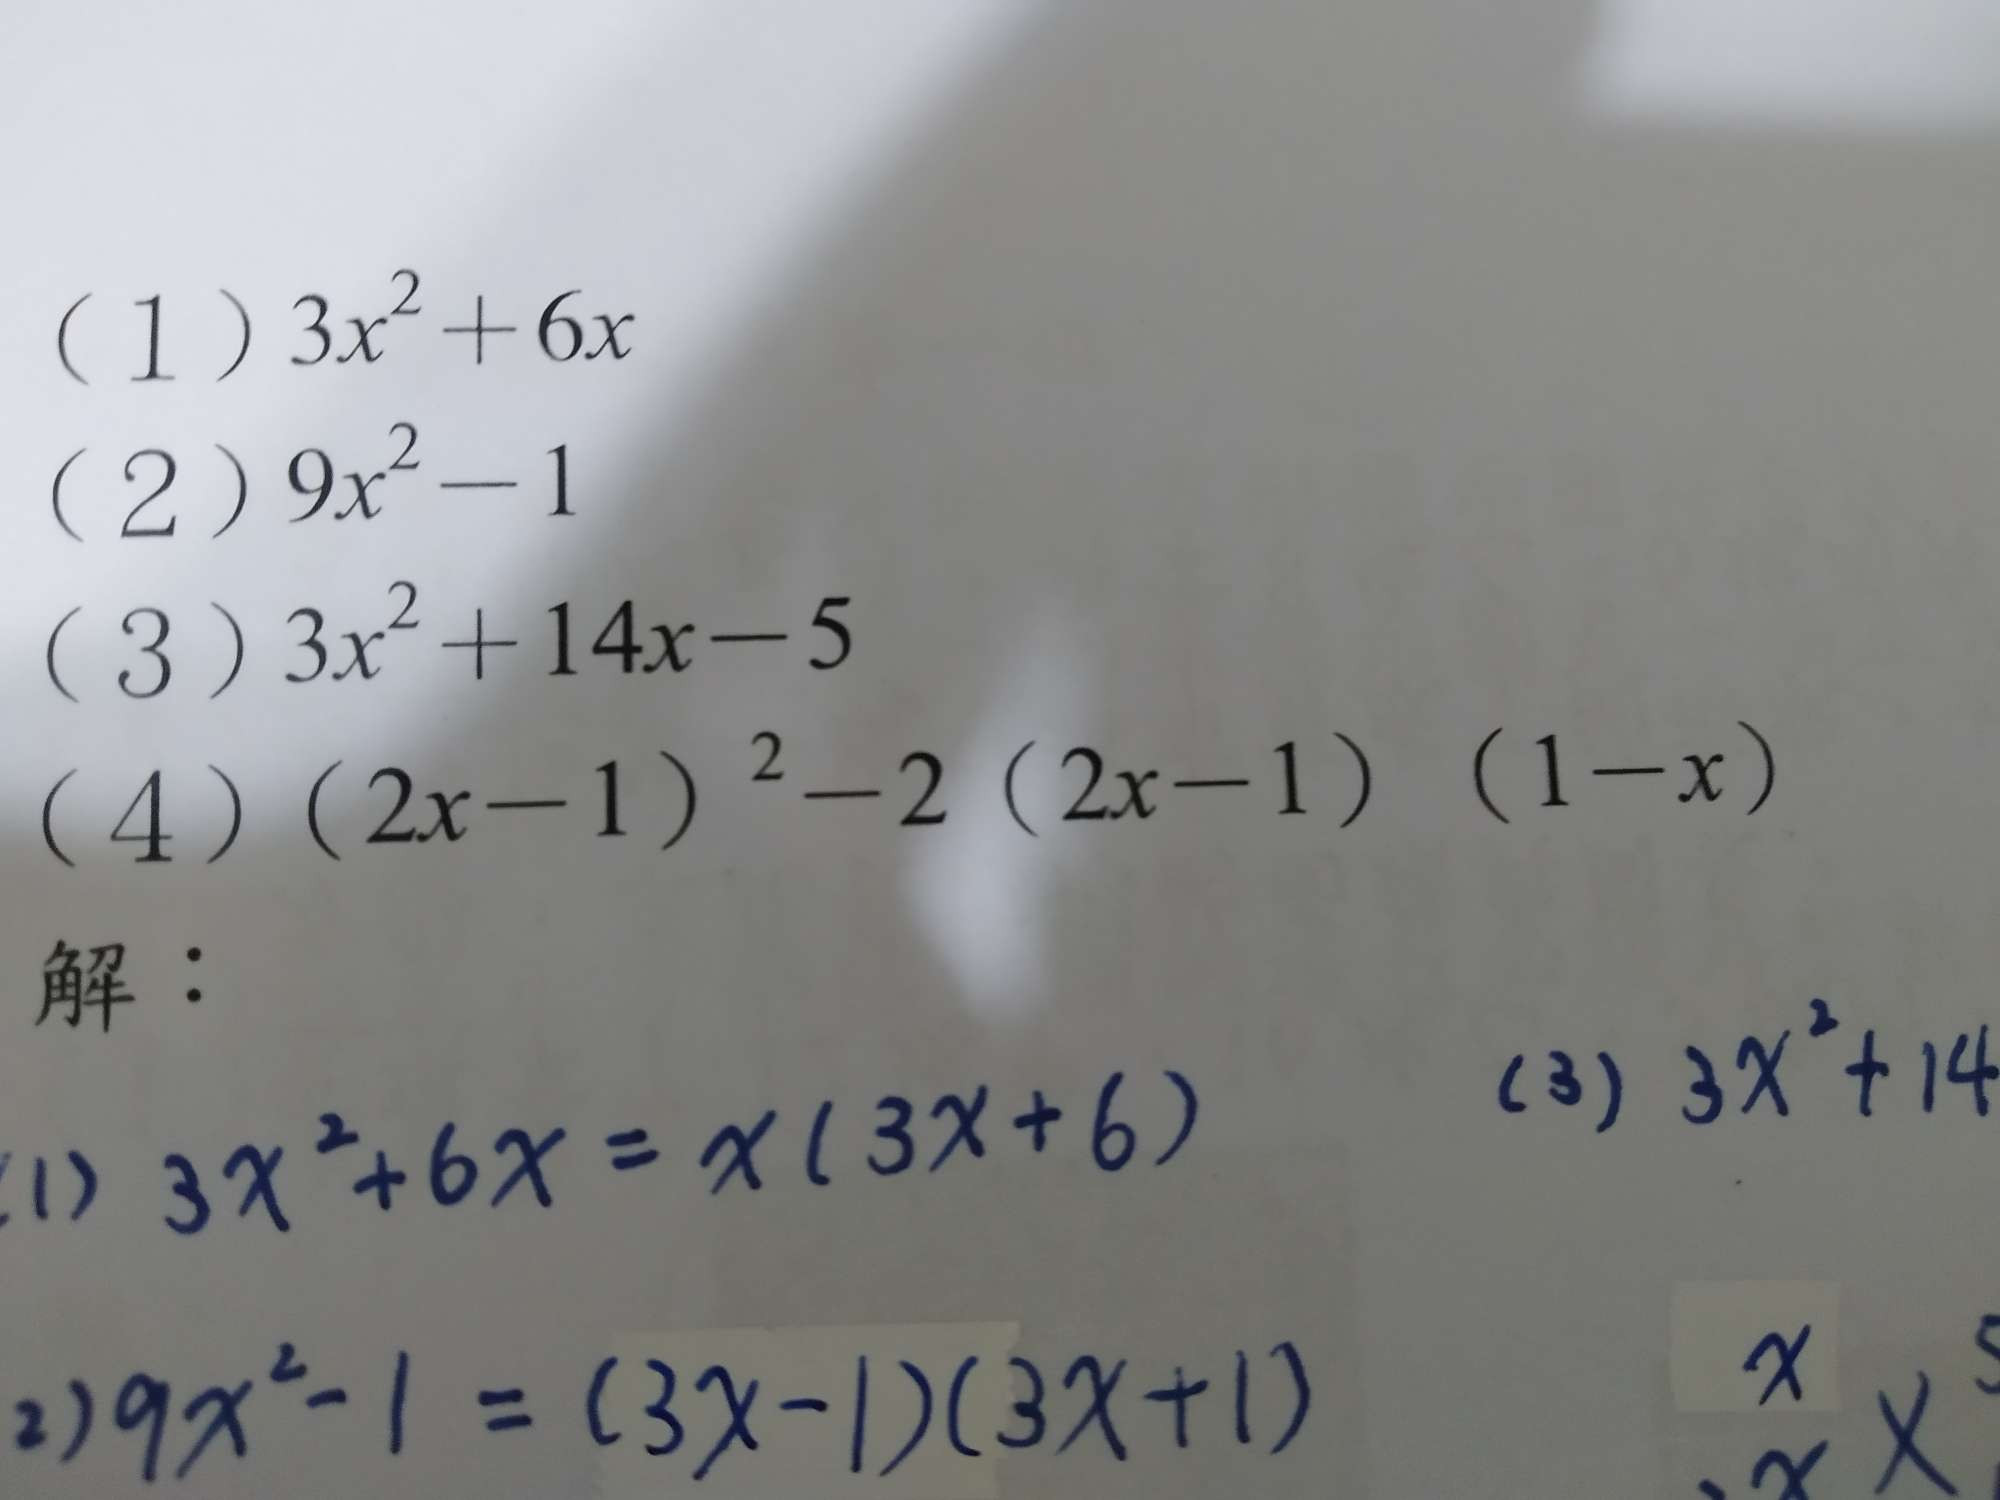 (1) 3x²+6x
(2) 9x²-1
(3) 3x²+14x-5
(4) (2x-1)²-2(2x-1)(1-x)
解：
(1) 3x²+6x = x(3x+6)
(3) 3x²+14
2) 9x²-1 = (3x-1)(3x+1)
x
x